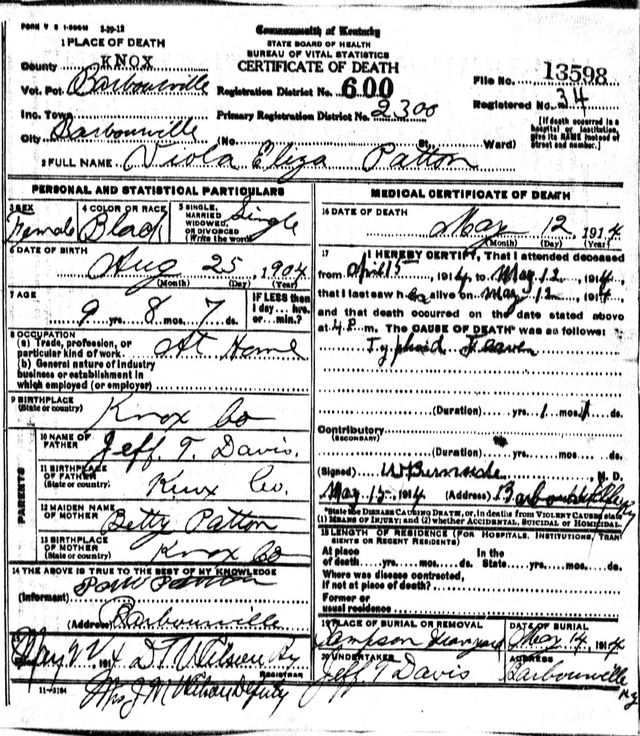 FORM V S 1-500M 3-29-12
Commonwealth of Kentucky
STATE BOARD OF HEALTH
BUREAU OF VITAL STATISTICS
CERTIFICATE OF DEATH
1 PLACE OF DEATH
County KNOX
Vot. Pct. Barbourville
Registration District No. 600
File No. 13598
Inc. Town
Primary Registration District No. 2300
Registered No. 34
City Barbourville
(No. St. Ward)
[If death occurred in a hospital or institution, give its NAME instead of street and number.]
2 FULL NAME Viola Eliza Patton
PERSONAL AND STATISTICAL PARTICULARS
3 SEX Female
4 COLOR OR RACE Black
5 SINGLE, MARRIED WIDOWED, OR DIVORCED (Write the word) Single
6 DATE OF BIRTH
Aug 25, 1904
(Month) (Day) (Year)
7 AGE
9 yrs. 8 mos. 7 ds.
IF LESS than 1 day... hrs. or... min.?
8 OCCUPATION
(a) Trade, profession, or particular kind of work. At Home
(b) General nature of industry
business or establishment in
which employed (or employer)
9 BIRTHPLACE
(State or country) Knox Co
PARENTS
10 NAME OF FATHER Jeff T. Davis
11 BIRTHPLACE OF FATHER (State or country) Knox Co.
12 MAIDEN NAME OF MOTHER Betty Patton
13 BIRTHPLACE OF MOTHER (State or country) Knox Co
14 THE ABOVE IS TRUE TO THE BEST OF MY KNOWLEDGE
(Informant) Patton
(Address) Barbourville
15
Filed May 22 1914 D T Wilson Ky
REGISTRAR
Mrs J M Wilson Deputy
11-3184
MEDICAL CERTIFICATE OF DEATH
16 DATE OF DEATH
May 12, 1914
(Month) (Day) (Year)
17 I HEREBY CERTIFY, That I attended deceased
from April 15 1914, to May 12 1914,
that I last saw h alive on May 12 1914,
and that death occurred on the date stated above
at 4 P. m. The CAUSE OF DEATH* was as follows:
Typhoid
(Duration) yrs. 1 mos. ds.
Contributory
(SECONDARY)
(Duration) yrs. mos. ds.
(Signed) W Burnside M. D.
May 15 1914 (Address) Barbourville Ky
*State the DISEASE CAUSING DEATH, or, in deaths from VIOLENT CAUSES state
(1) MEANS OF INJURY; and (2) whether ACCIDENTAL, SUICIDAL or HOMICIDAL
18 LENGTH OF RESIDENCE (FOR HOSPITALS, INSTITUTIONS, TRANSIENTS OR RECENT RESIDENTS)
At place of death yrs. mos. ds. In the State yrs. mos. ds.
Where was disease contracted,
if not at place of death?
Former or
usual residence
19 PLACE OF BURIAL OR REMOVAL
Sampson
DATE OF BURIAL
May 14, 1914
20 UNDERTAKER
Jeff T Davis
ADDRESS
Barbourville Ky